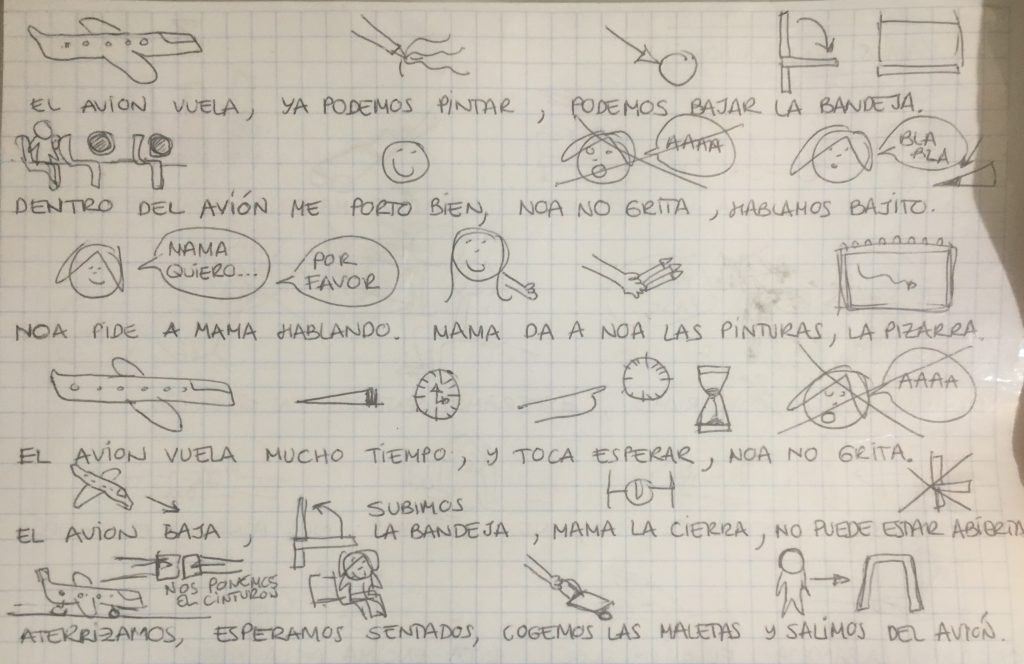 EL AVION VUELA, YA PODEMOS PINTAR, PODEMOS BAJAR LA BANDEJA.
AAAA
BLA
BLA
DENTRO DEL AVIÓN ME PORTO BIEN, NOA NO GRITA, HABLAMOS BAJITO.
MAMA
QUIERO...
POR
FAVOR
NOA PIDE A MAMA HABLANDO. MAMA DA A NOA LAS PINTURAS, LA PIZARRA.
AAAA
EL AVIÓN VUELA MUCHO TIEMPO, Y TOCA ESPERAR, NOA NO GRITA.
EL AVION BAJA, SUBIMOS
LA BANDEJA, MAMA LA CIERRA, NO PUEDE ESTAR ABIERTA
NOS PONEMOS
EL CINTUROS
ATERRIZAMOS, ESPERAMOS SENTADOS, COGEMOS LAS MALETAS Y SALIMOS DEL AVIOŃ.